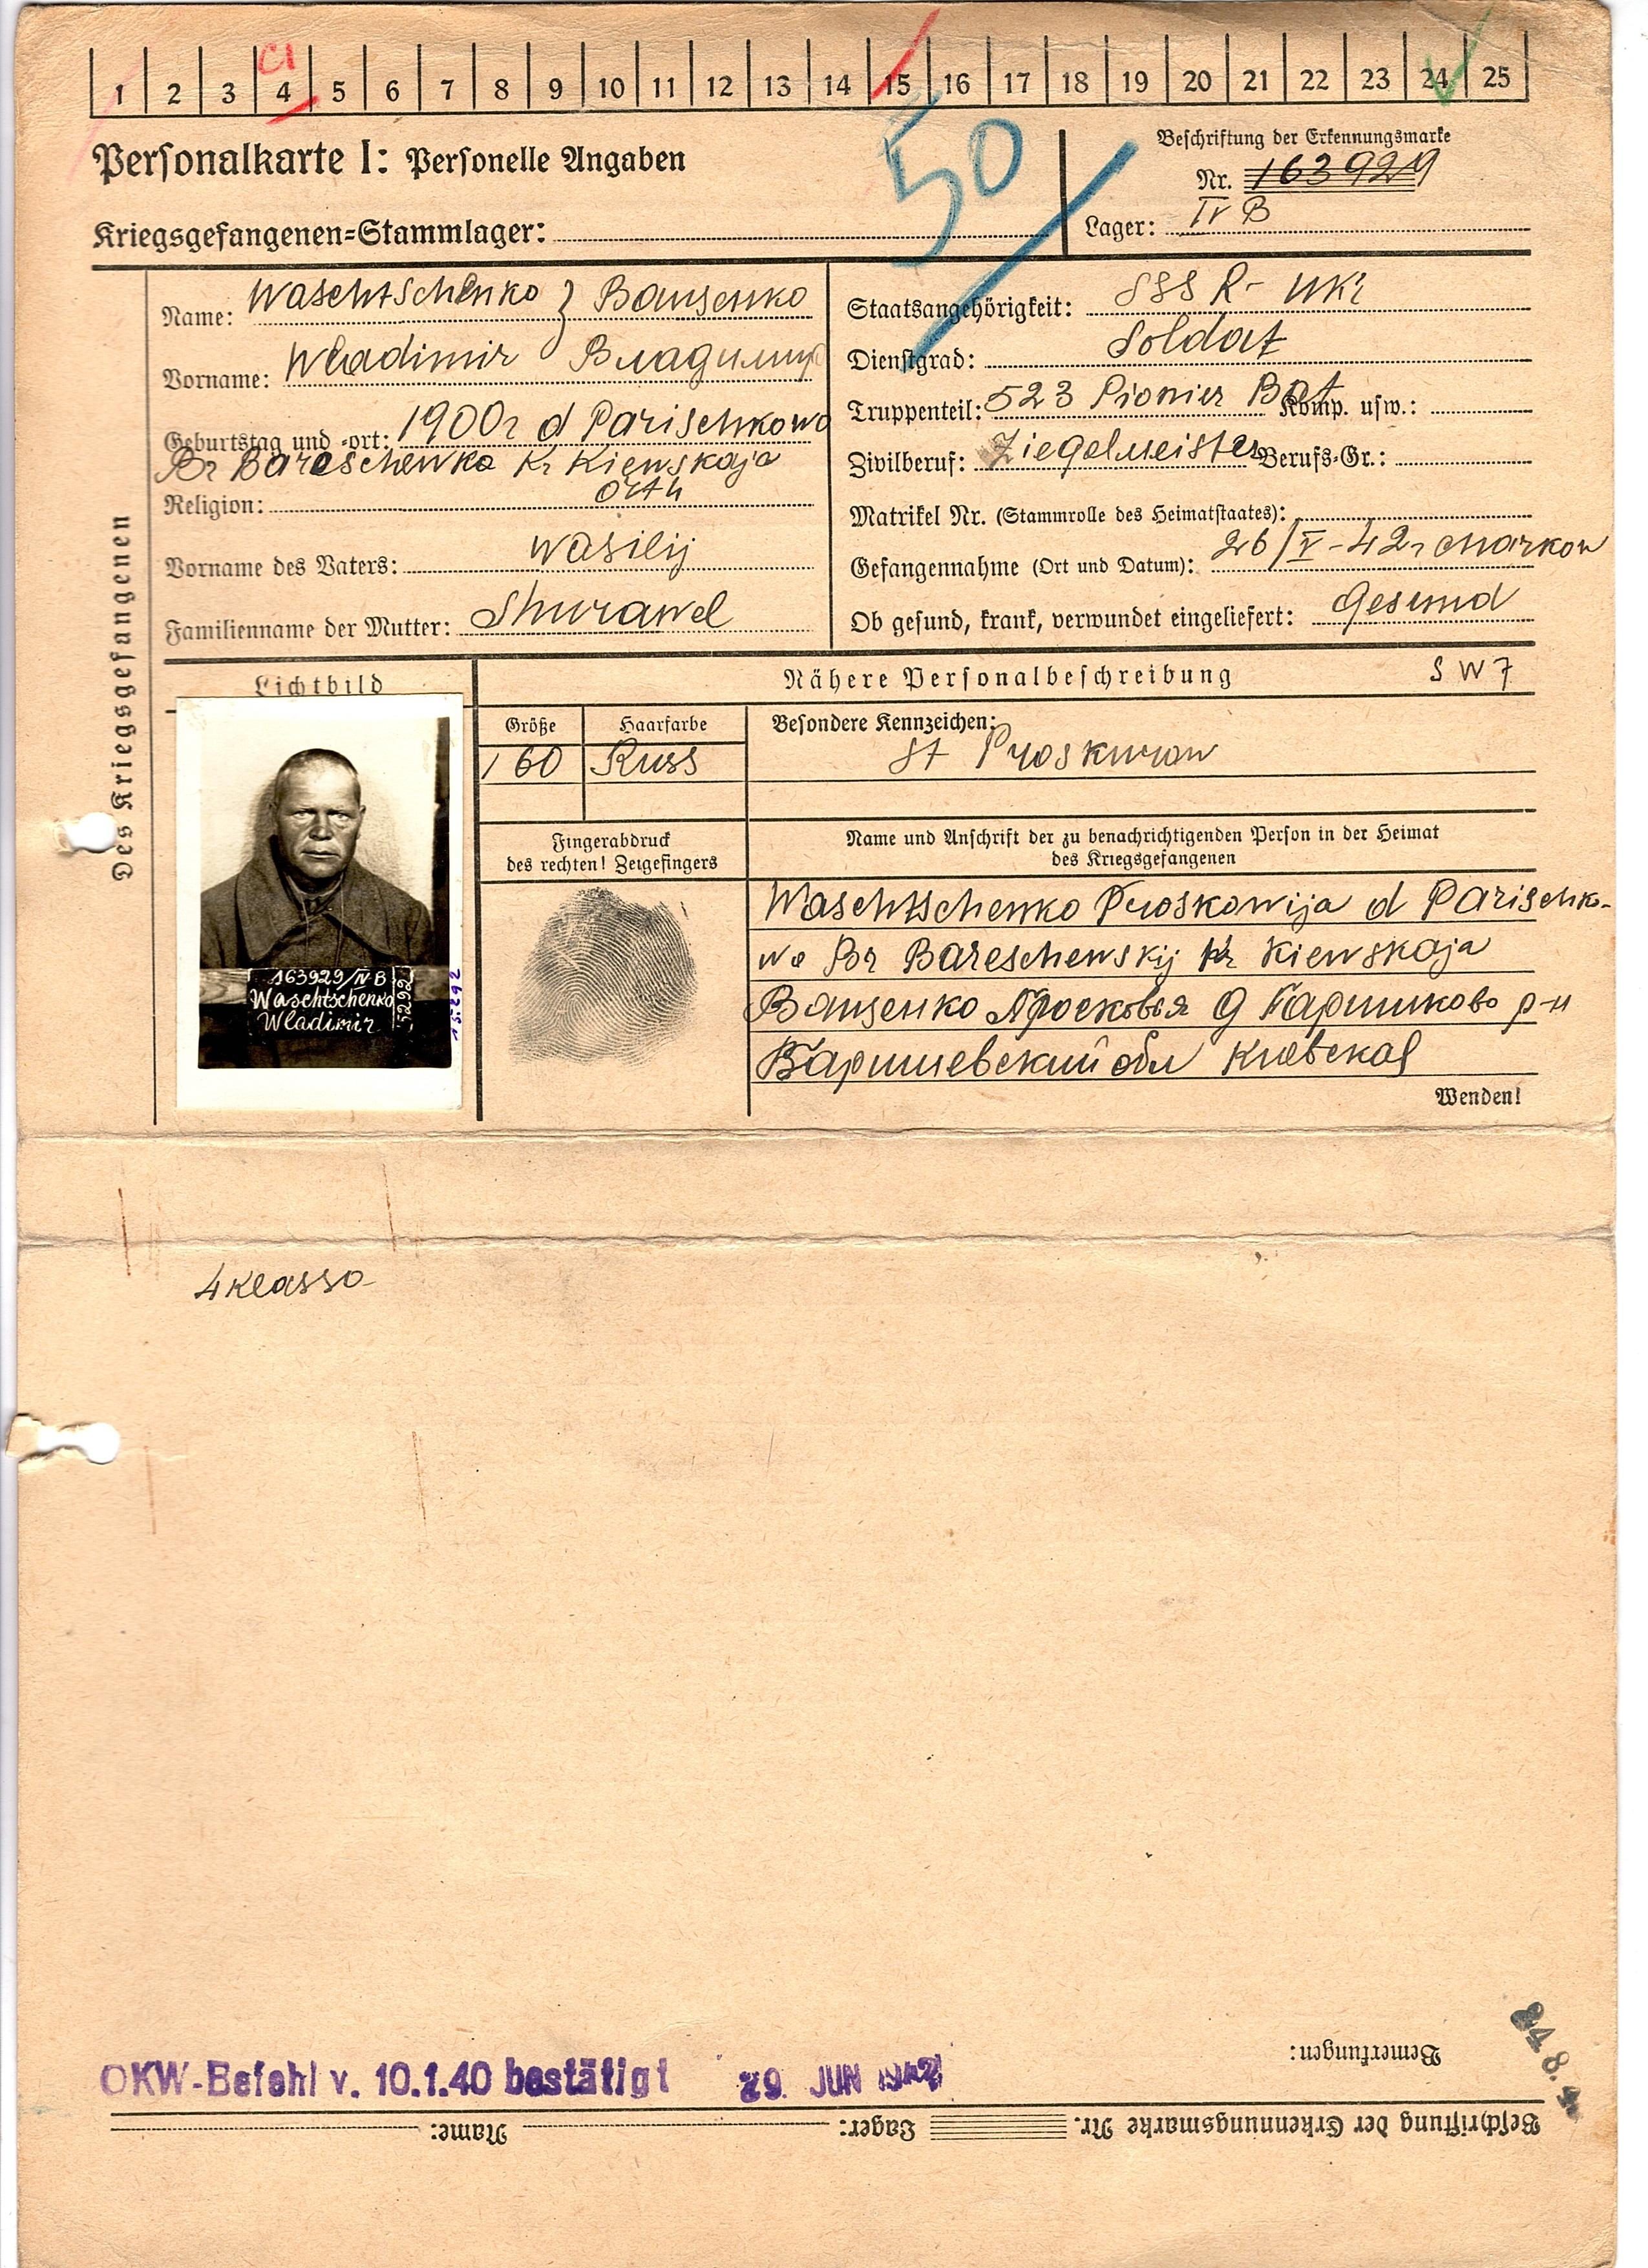 1 2 3 4 5 6 7 8 9 10 11 12 13 14 15 16 17 18 19 20 21 22 23 24 25
50
Personalkarte I: Personelle Angaben
Beschriftung der Erkennungsmarke
Nr. 163929
Kriegsgefangenen=Stammlager:
Lager: IV B
Des Kriegsgefangenen
Name: Waschtschenko } Ващенко
Vorname: Wladimir Владимир
Geburtstag und -ort: 1900г d Parischkowo
Br Bareschewka Kr Kiewskaja
Religion: orth
Vorname des Vaters: Wasilij
Familienname der Mutter: Shurawel
Staatsangehörigkeit: SSSR- Ukr
Dienstgrad: Soldat
Truppenteil: 523 Pionier Bat Komp. usw.:
Zivilberuf: Ziegelmeister Berufs=Gr.:
Matrikel Nr. (Stammrolle des Heimatstaates):
Gefangennahme (Ort und Datum): 26/V-42г Charkow
Ob gesund, krank, verwundet eingeliefert: Gesund
Lichtbild
Nähere Personalbeschreibung S W 7
Größe Haarfarbe Besondere Kennzeichen:
160 Russ St Proskurow
163929/IV B
Waschtschenko
Wladimir
5292
15.292
Fingerabdruck
des rechten! Zeigefingers
Name und Anschrift der zu benachrichtigenden Person in der Heimat
des Kriegsgefangenen
Waschtschenko Proskowija d Parischko-
wo Br Bareschewskij Kr Kiewskaja
Ващенко Просковья д Паришково р-н
Баришевский обл Киевская
Wenden!
4 Klasso
Bemerkungen:
OKW-Befehl v. 10.1.40 bestätigt 29. JUN 1942
Beschriftung der Erkennungsmarke Nr. Lager: Name: